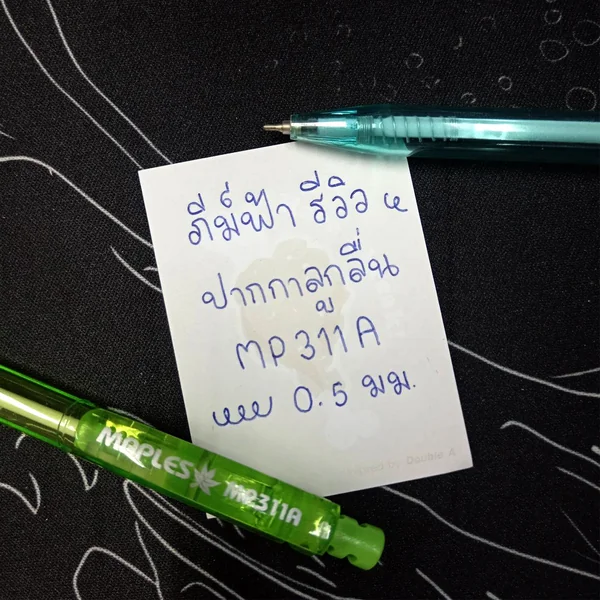 ภีม์ฟ้า รีวิว
ปากกาลูกลื่น
MP 311 A
0.5 มม.
Double A
MAPLES MP311A